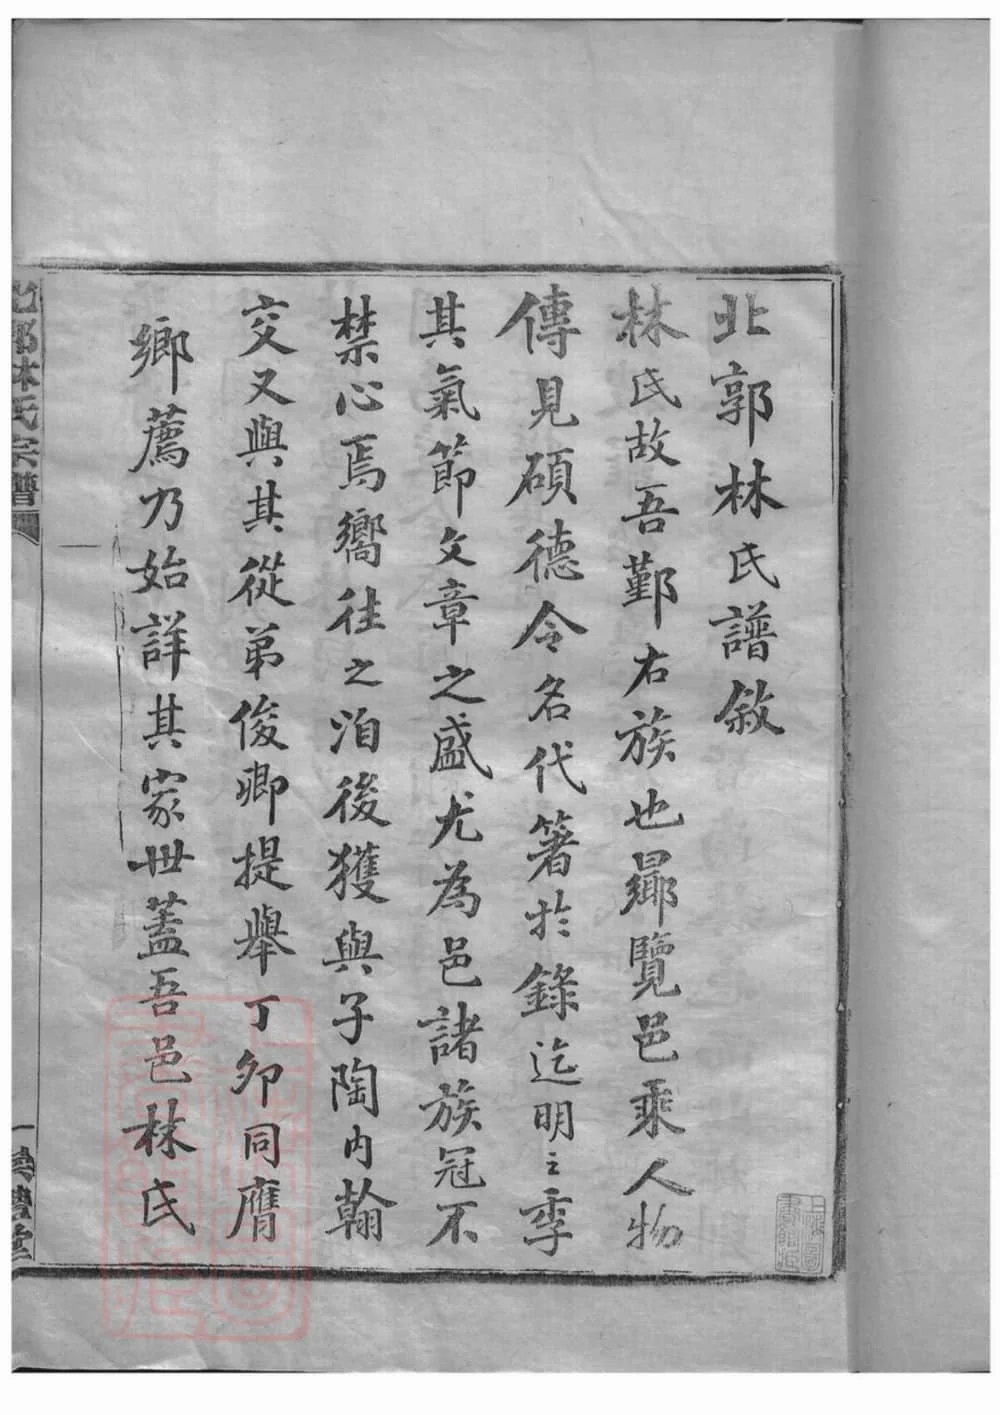 北郭林氏譜敘
林氏故吾鄞右族也曏覽邑乘人物
傳見碩德令名代箸於錄迄明之季
其氣節文章之盛尤為邑諸族冠不
禁心焉嚮往之洎後獲與子陶內翰
交又與其從弟俊卿提舉丁卯同膺
鄉薦乃始詳其家世蓋吾邑林氏
北郭林氏宗譜
一